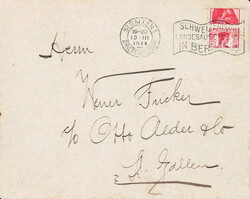 ST. GALLEN 1
19-20
19 III
1914
SCHWEIZ.
LANDESAUSSTELLUNG
IN BERN
Herrn
Werner Fricker
c/o Otto Alder & Co
St. Gallen